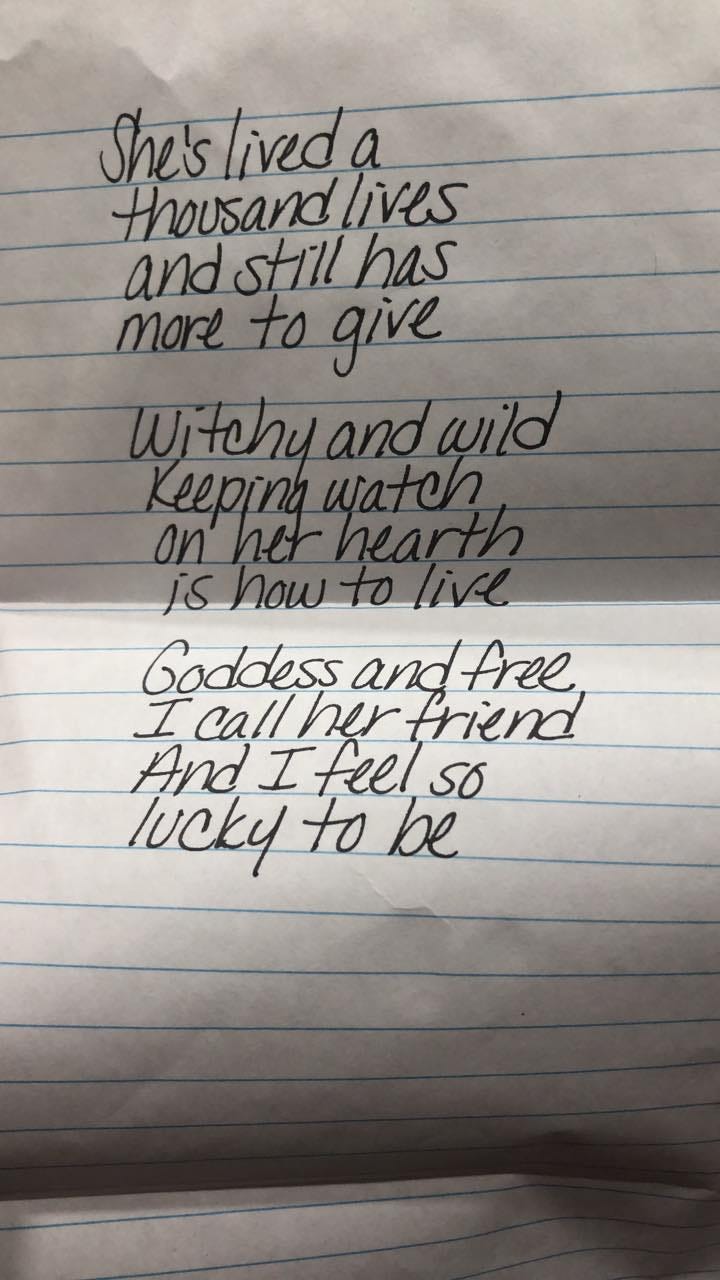 She's lived a
thousand lives
and still has
more to give
Witchy and wild
Keeping watch
on her hearth
is how to live
Goddess and free
I call her friend
And I feel so
lucky to be